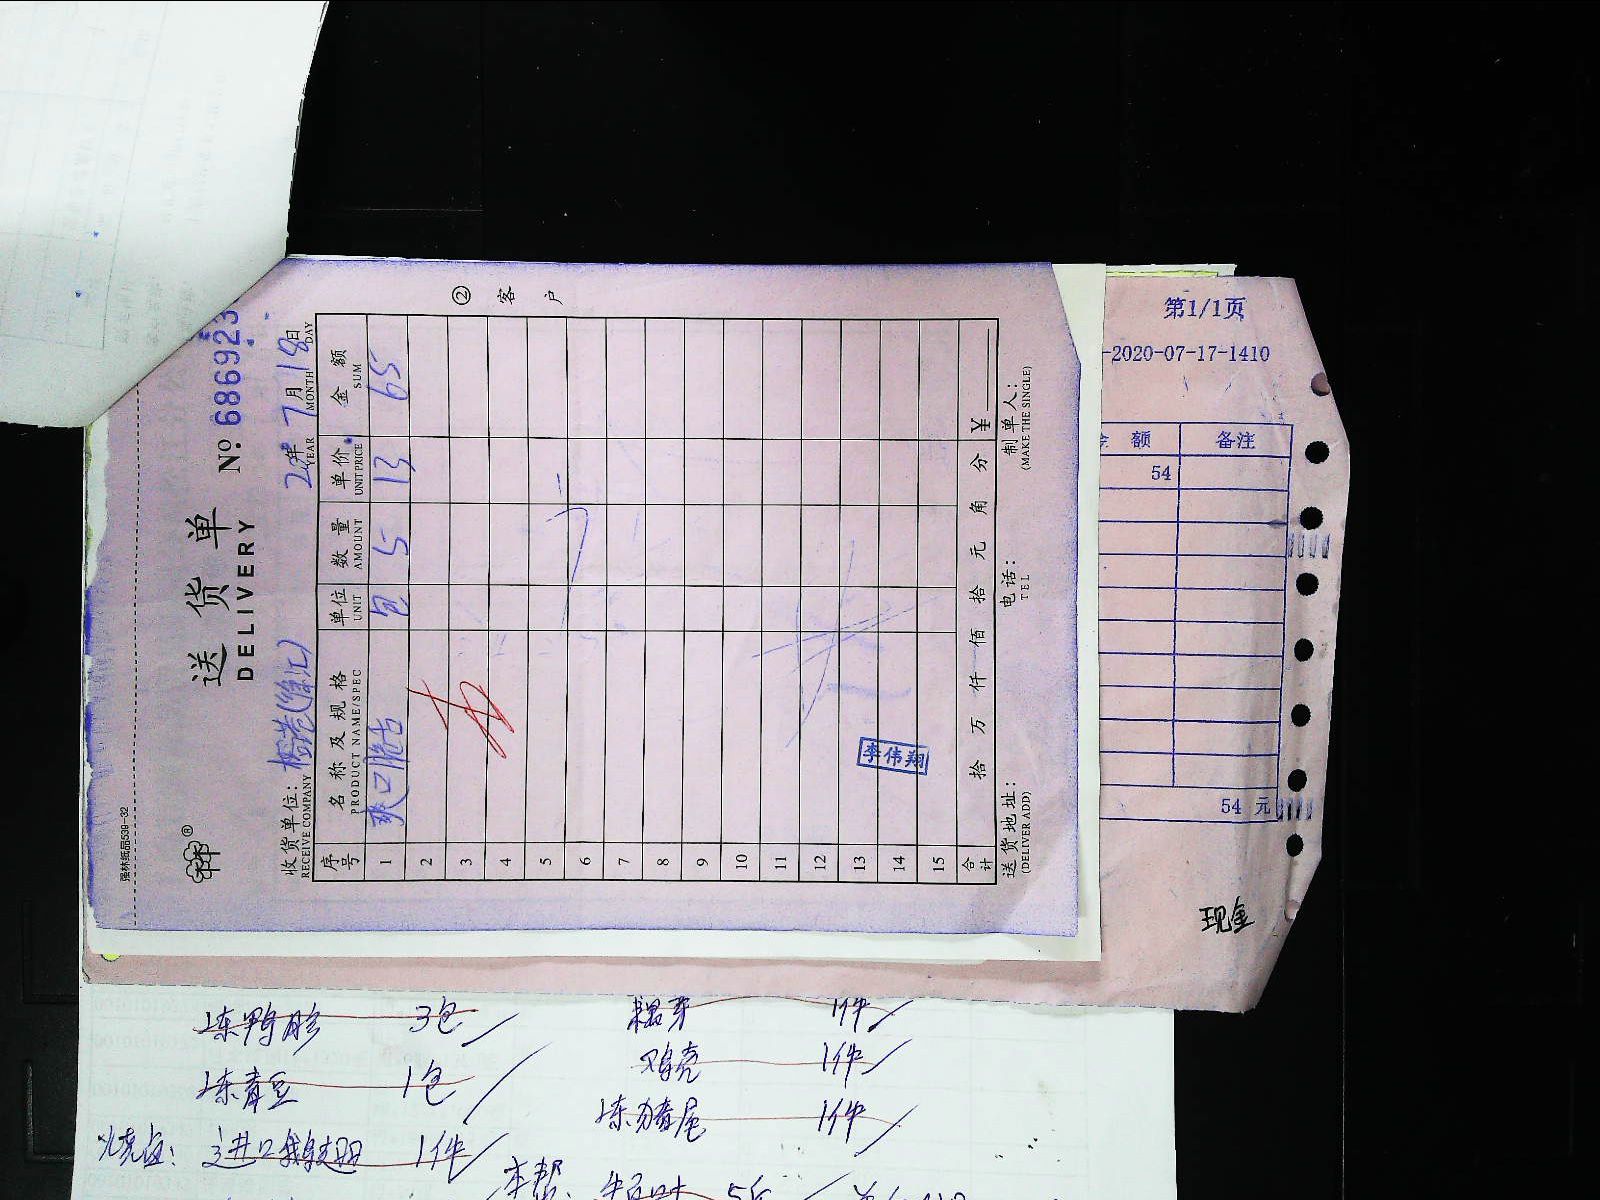 强林纸品539-32
送货单
DELIVERY
№ 686923
收货单位:
RECEIVE COMPANY
(徐汇)
20年 7月 18日
YEAR MONTH DAY
② 客 户
序号 名称及规格 单位 数量 单价 金额
PRODUCT NAME/SPEC UNIT AMOUNT UNIT PRICE SUM
1 爽口脆舌 包 5 13 65
2
3
4
5
6
7
8
9
10
11
12
13
14
15
李伟翔
合计 拾 万 仟 佰 拾 元 角 分 ¥
送货地址: 电话: 制单人:
(DELIVER ADD) TEL (MAKE THE SINGLE)
第1/1页
-2020-07-17-1410
额 备注
54
54 元
现金
冻鸭胗 3包
冻青豆 1包
烧卤: 进口鹅翅 1件
1件
鸡壳 1件
冻猪尾 1件
本帮: